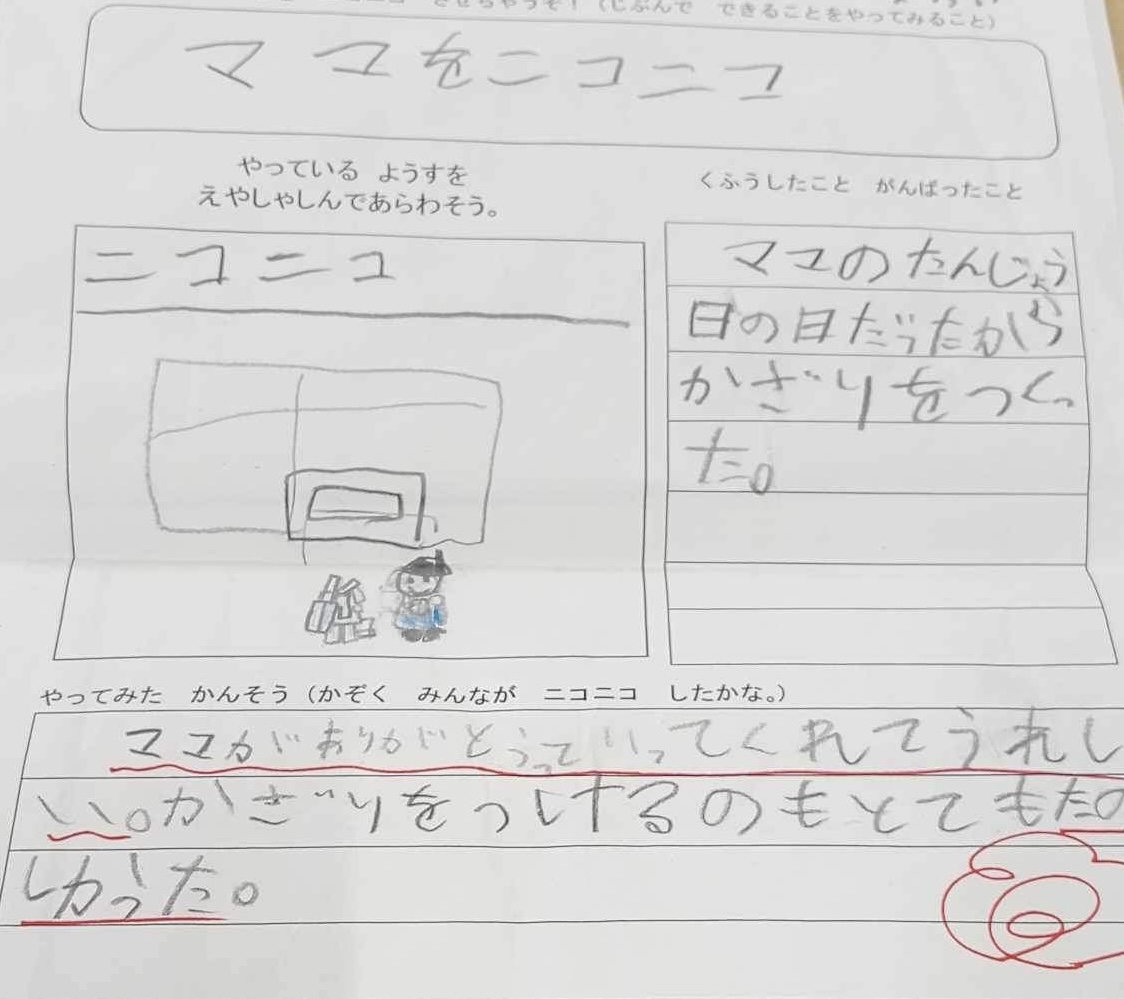 させちゃうぞ！（じぶんで できることをやってみること）
ママをニコニコ
やっている ようすを
えやしゃしんであらわそう。
ニコニコ
くふうしたこと がんばったこと
ママのたんじょう
日の日だったから
かざりをつくっ
た。
やってみた かんそう（かぞく みんなが ニコニコ したかな。）
ママがありがとうっていってくれてうれし
い。かざりをつけるのもとてもたの
しかった。